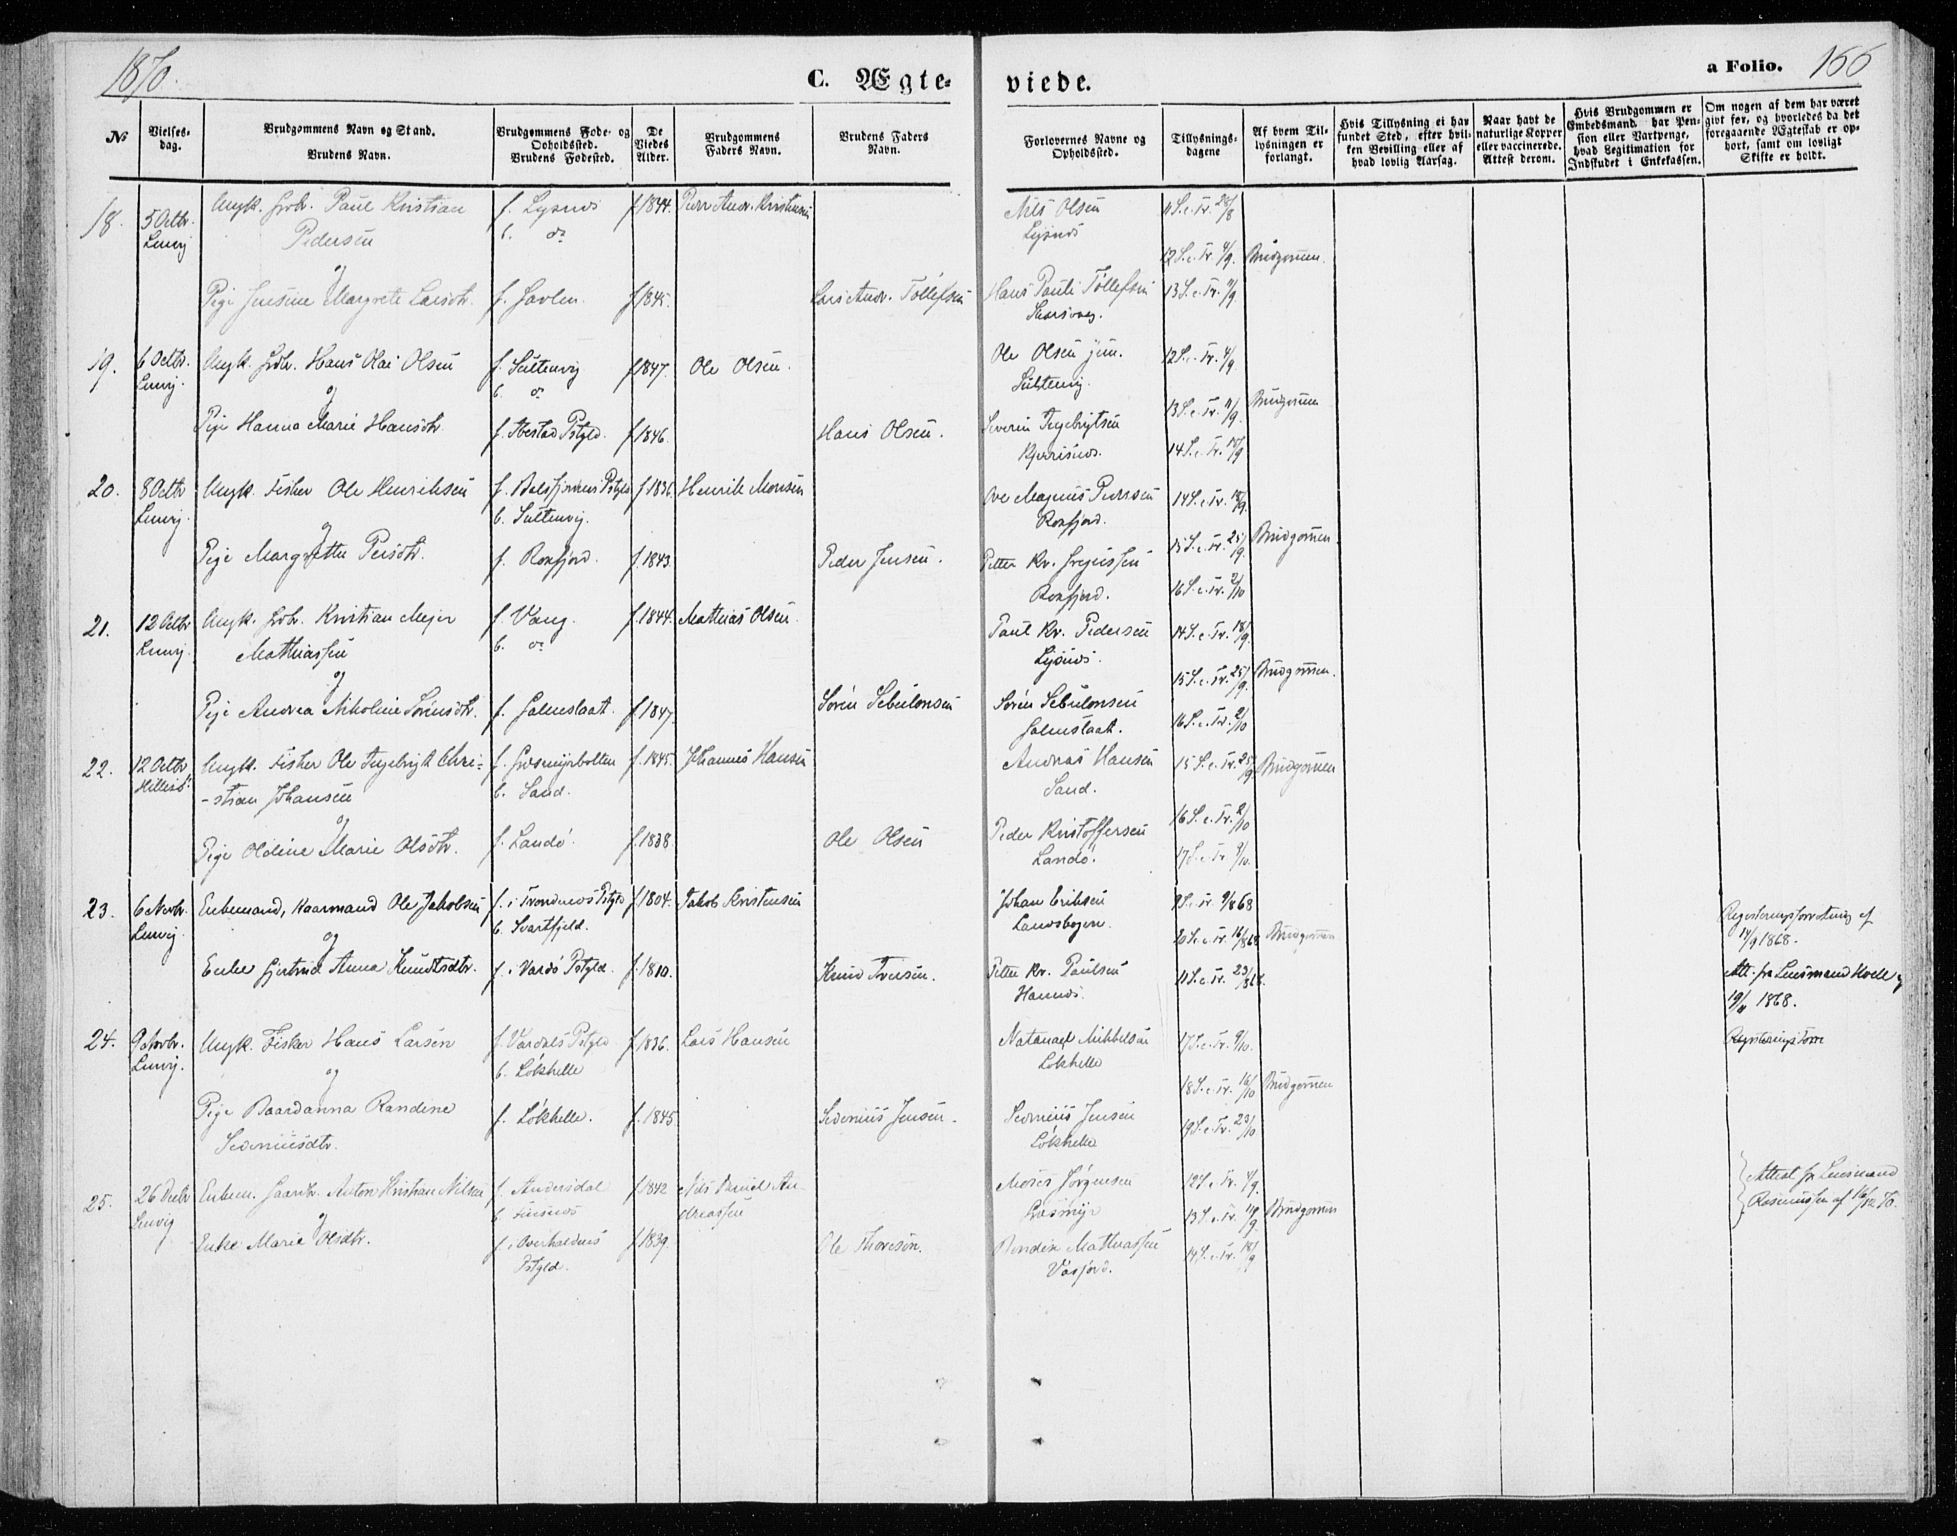 1870.
C. Ægte-
viede.
a Folio. 166
No
Vielses-
dag.
Brudgommens Navn og Stand.
Brudens Navn.
Brudgommens Føde- og
Opholdssted.
Brudens Fødested.
De
Viedes
Alder.
Brudgommens
Faders Navn.
Brudens Faders
Navn.
Forlovernes Navne og
Opholdssted.
Tillysnings-
dagene
Af hvem Til-
lysningen er
forlangt.
Hvis Tillysning ei har
fundet Sted, efter hvil-
ken Bevilling eller af
hvad lovlig Aarsag.
Naar havt de
naturlige Kopper
eller vaccinerede.
Attest derom.
Hvis Brudgommen er
Embedsmand, har Pen-
sion eller Vartpenge,
hvad Legitimation for
Indskudet i Enkekassen.
Om nogen af dem har været
givt før, og hvorledes da det
foregaaende Ægteskab er op-
hørt, samt om lovligt
Skifte er holdt.
18. 5 Octbr. Ungk. Paul Kristian f. Lysnes f. 1844. Nils Olsen 11 S.e.Tr. 28/8
Lenvig Pedersen b. do Lysnes
og 12 S.e.Tr. 4/9. Brudgommen.
Pige Jensine Margrete Larsdtr. f. f. 1845. Lars Andr. Tøllefsen Hans Pauli Tøllefsen 13 S.e.Tr. 11/9
19. 6 Octbr. Ungk. Hans Olai Olsen f. Sultenvig f. 1847. Ole Olsen. Ole Olsen jun. 12 S.e.Tr. 4/9
Lenvig. og b. do Sultenvig. 13 S.e.Tr. 11/9. Brudgommen
Pige Hanna Marie Hansdtr. f. Ibestad Pstgld. f. 1846. Hans Olsen. Severin Ingebrigtsen
14 S.e.Tr. 18/9
20. 8 Octbr Ungk. Fisker Ole Henriksen f. Balsfjordens Pstgld f. 1836. Henrik Monsen Ove Magnus Pedersen 14 S.e.Tr. 18/9.
Lenvig. og b. Sultenvig. Roxfjord. 15 S.e.Tr. 25/9. Brudgommen.
Pige Margrethe Persdtr. f. Roxfjord. f. 1843. Peder Jensen. Petter Kr.
Roxfjord. 16 S.e.Tr. 2/10
21. 12 Octbr Ungk. Kristian Mejer f. Vang. f. 1844. Mathias Olsen. Paul Kr. Pedersen 14 S.e.Tr. 18/9.
Lenvig. Mathiassen b. do Lysnes.
og 15 S.e.Tr. 25/9. Brudgommen.
Pige Andrea Nikoline Sørensdtr. f. f. 1847. Søren Sebulonsen Søren Sebulonsen 16 S.e.Tr. 2/10
22. 12 Octbr Ungk. Fisker Ole Ingebrigt Chri- f. Græsmyrbotten f. 1845. Johannes Hansen Andreas Hansen 15 S.e.Tr. 25/9 Brudgommen
Hillesø. -stian Johansen b. Sand. Sand.
og 16 S.e.Tr. 2/10
Pige Oldine Marie Olsdtr. f. Landø f. 1838. Ole Olsen Peder Kristoffersen
Landø. 17 S.e.Tr. 9/10.
23. 6 Novbr. Enkemand, Kaarmand Ole Jakobsen f. i Trondenæs Pstgld f. 1804. Jakob Kristensen Johan Eriksen 9 S.e.Tr. 9/8 68
Lenvig. og b. Svartfjeld. 10 S.e.Tr. 16/8 68. Brudgommen Registeringsforretning af
14/9 1868.
Enke Gjertrud Anna Knudtsdtr. f. i Vardø Pstgld. f. 1810. Knud Iversen. Petter Kr. Paulsen 11 S.e.Tr. 23/8 68. Att. fra Lensmand
Hannes. 1868.
24. 9 Novbr. Ungk. Fisker Hans Larsen f. Vardals Pstgld f. 1836. Lars Hansen Natanael Mikkelsen 17 S.e.Tr. 9/10.
Lenvig. og b. Løkhelle Løkhelle
18 S.e.Tr. 16/10 Brudgommen
Pige Baardanna Randine f. Løkhelle. f. 1845 Sevenius Jensen. Sevenius Jensen 19 S.e.Tr. 23/10
Seveniusdtr. Løkhelle
25. 26 Decbr Enkem. Gaardbr. Anton Kristian Nilsen f. Andersdal f. 1842 Nils Daniel An- Moses Jørgensen 12 S.e.Tr. 4/9. Attest fra Lensmand
Lenvig og b. Finsnes dreassen Græsmyr 13 S.e.Tr. 11/9 Brudgommen Rasmussen af 16/12 70.
Enke Marie Olsdtr. f. i Overhaldens f. 1839. Ole Thoresen. Bendix Mathiassen 14 S.e.Tr. 18/9
Pstgld.